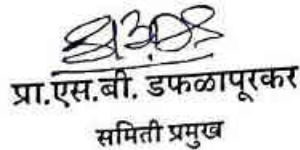 प्रा.एस.बी. डफळापूरकर
समिती प्रमुख